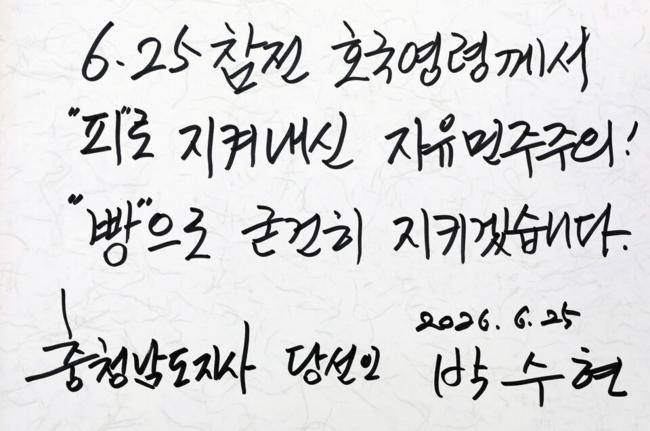 6.25 참전 호국영령께서
"피"로 지켜내신 자유민주주의!
"빵"으로 굳건히 지키겠습니다.
2026. 6. 25
충청남도지사 당선인 박수현